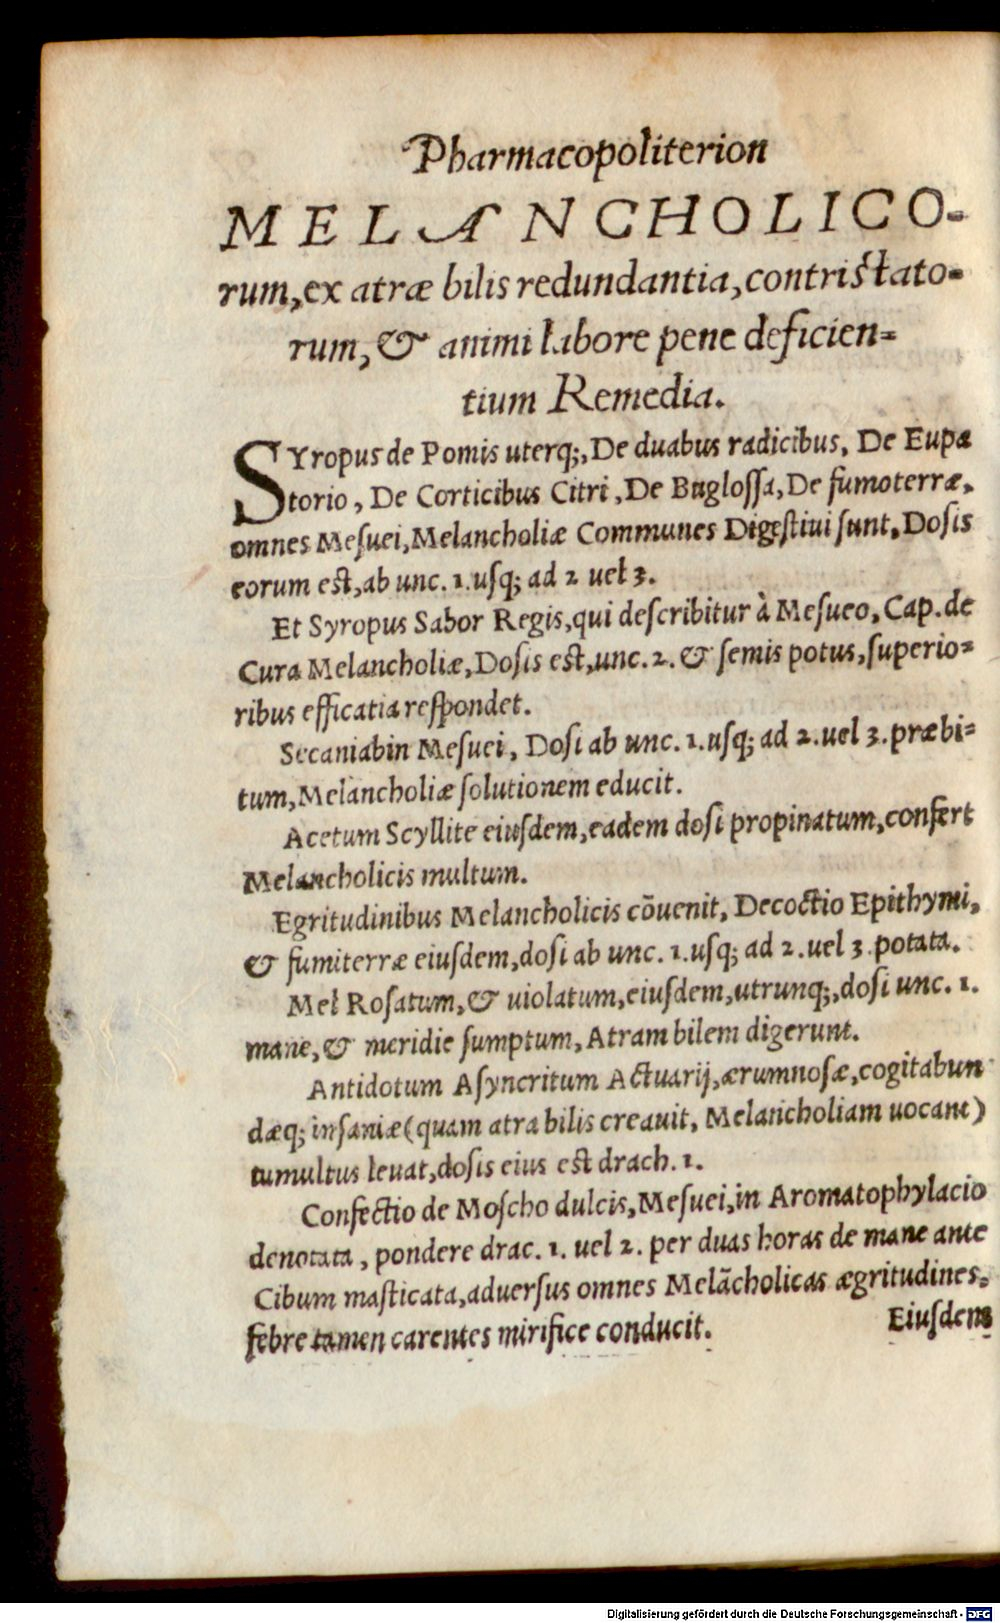 Pharmacopoliterion
MELANCHOLICO-
rum, ex atræ bilis redundantia, contristato-
rum, & animi labore pene deficien-
tium Remedia.
SYropus de Pomis uterq;, De duabus radicibus, De Eupa
torio, De Corticibus Citri, De Buglossa, De fumoterræ,
omnes Mesuei, Melancholiæ Communes Digestiui sunt, Dosis
eorum est, ab unc. 1. usq; ad 2 uel 3.
Et Syropus Sabor Regis, qui describitur à Mesueo, Cap. de
Cura Melancholiæ, Dosis est, unc. 2. & semis potus, superio-
ribus efficatia respondet.
Secaniabin Mesuei, Dosi ab unc. 1. usq; ad 2. uel 3. præbi-
tum, Melancholiæ solutionem educit.
Acetum Scyllite eiusdem, eadem dosi propinatum, confert
Melancholicis multum.
Egritudinibus Melancholicis cõuenit, Decoctio Epithymi,
& fumiterræ eiusdem, dosi ab unc. 1. usq; ad 2. uel 3. potata.
Mel Rosatum, & uiolatum, eiusdem, utrunq;, dosi unc. 1.
mane, & meridie sumptum, Atram bilem digerunt.
Antidotum Asyncritum Actuarij, ærumnosæ, cogitabun
dæq; insaniæ (quam atra bilis creauit, Melancholiam uocant)
tumultus leuat, dosis eius est drach. 1.
Confectio de Moscho dulcis, Mesuei, in Aromatophylacio
denotata, pondere drac. 1. uel 2. per duas horas de mane ante
Cibum masticata, aduersus omnes Melãcholicas ægritudines,
febre tamen carentes mirifice conducit.
Eiusdem
Digitalisierung gefördert durch die Deutsche Forschungsgemeinschaft - DFG